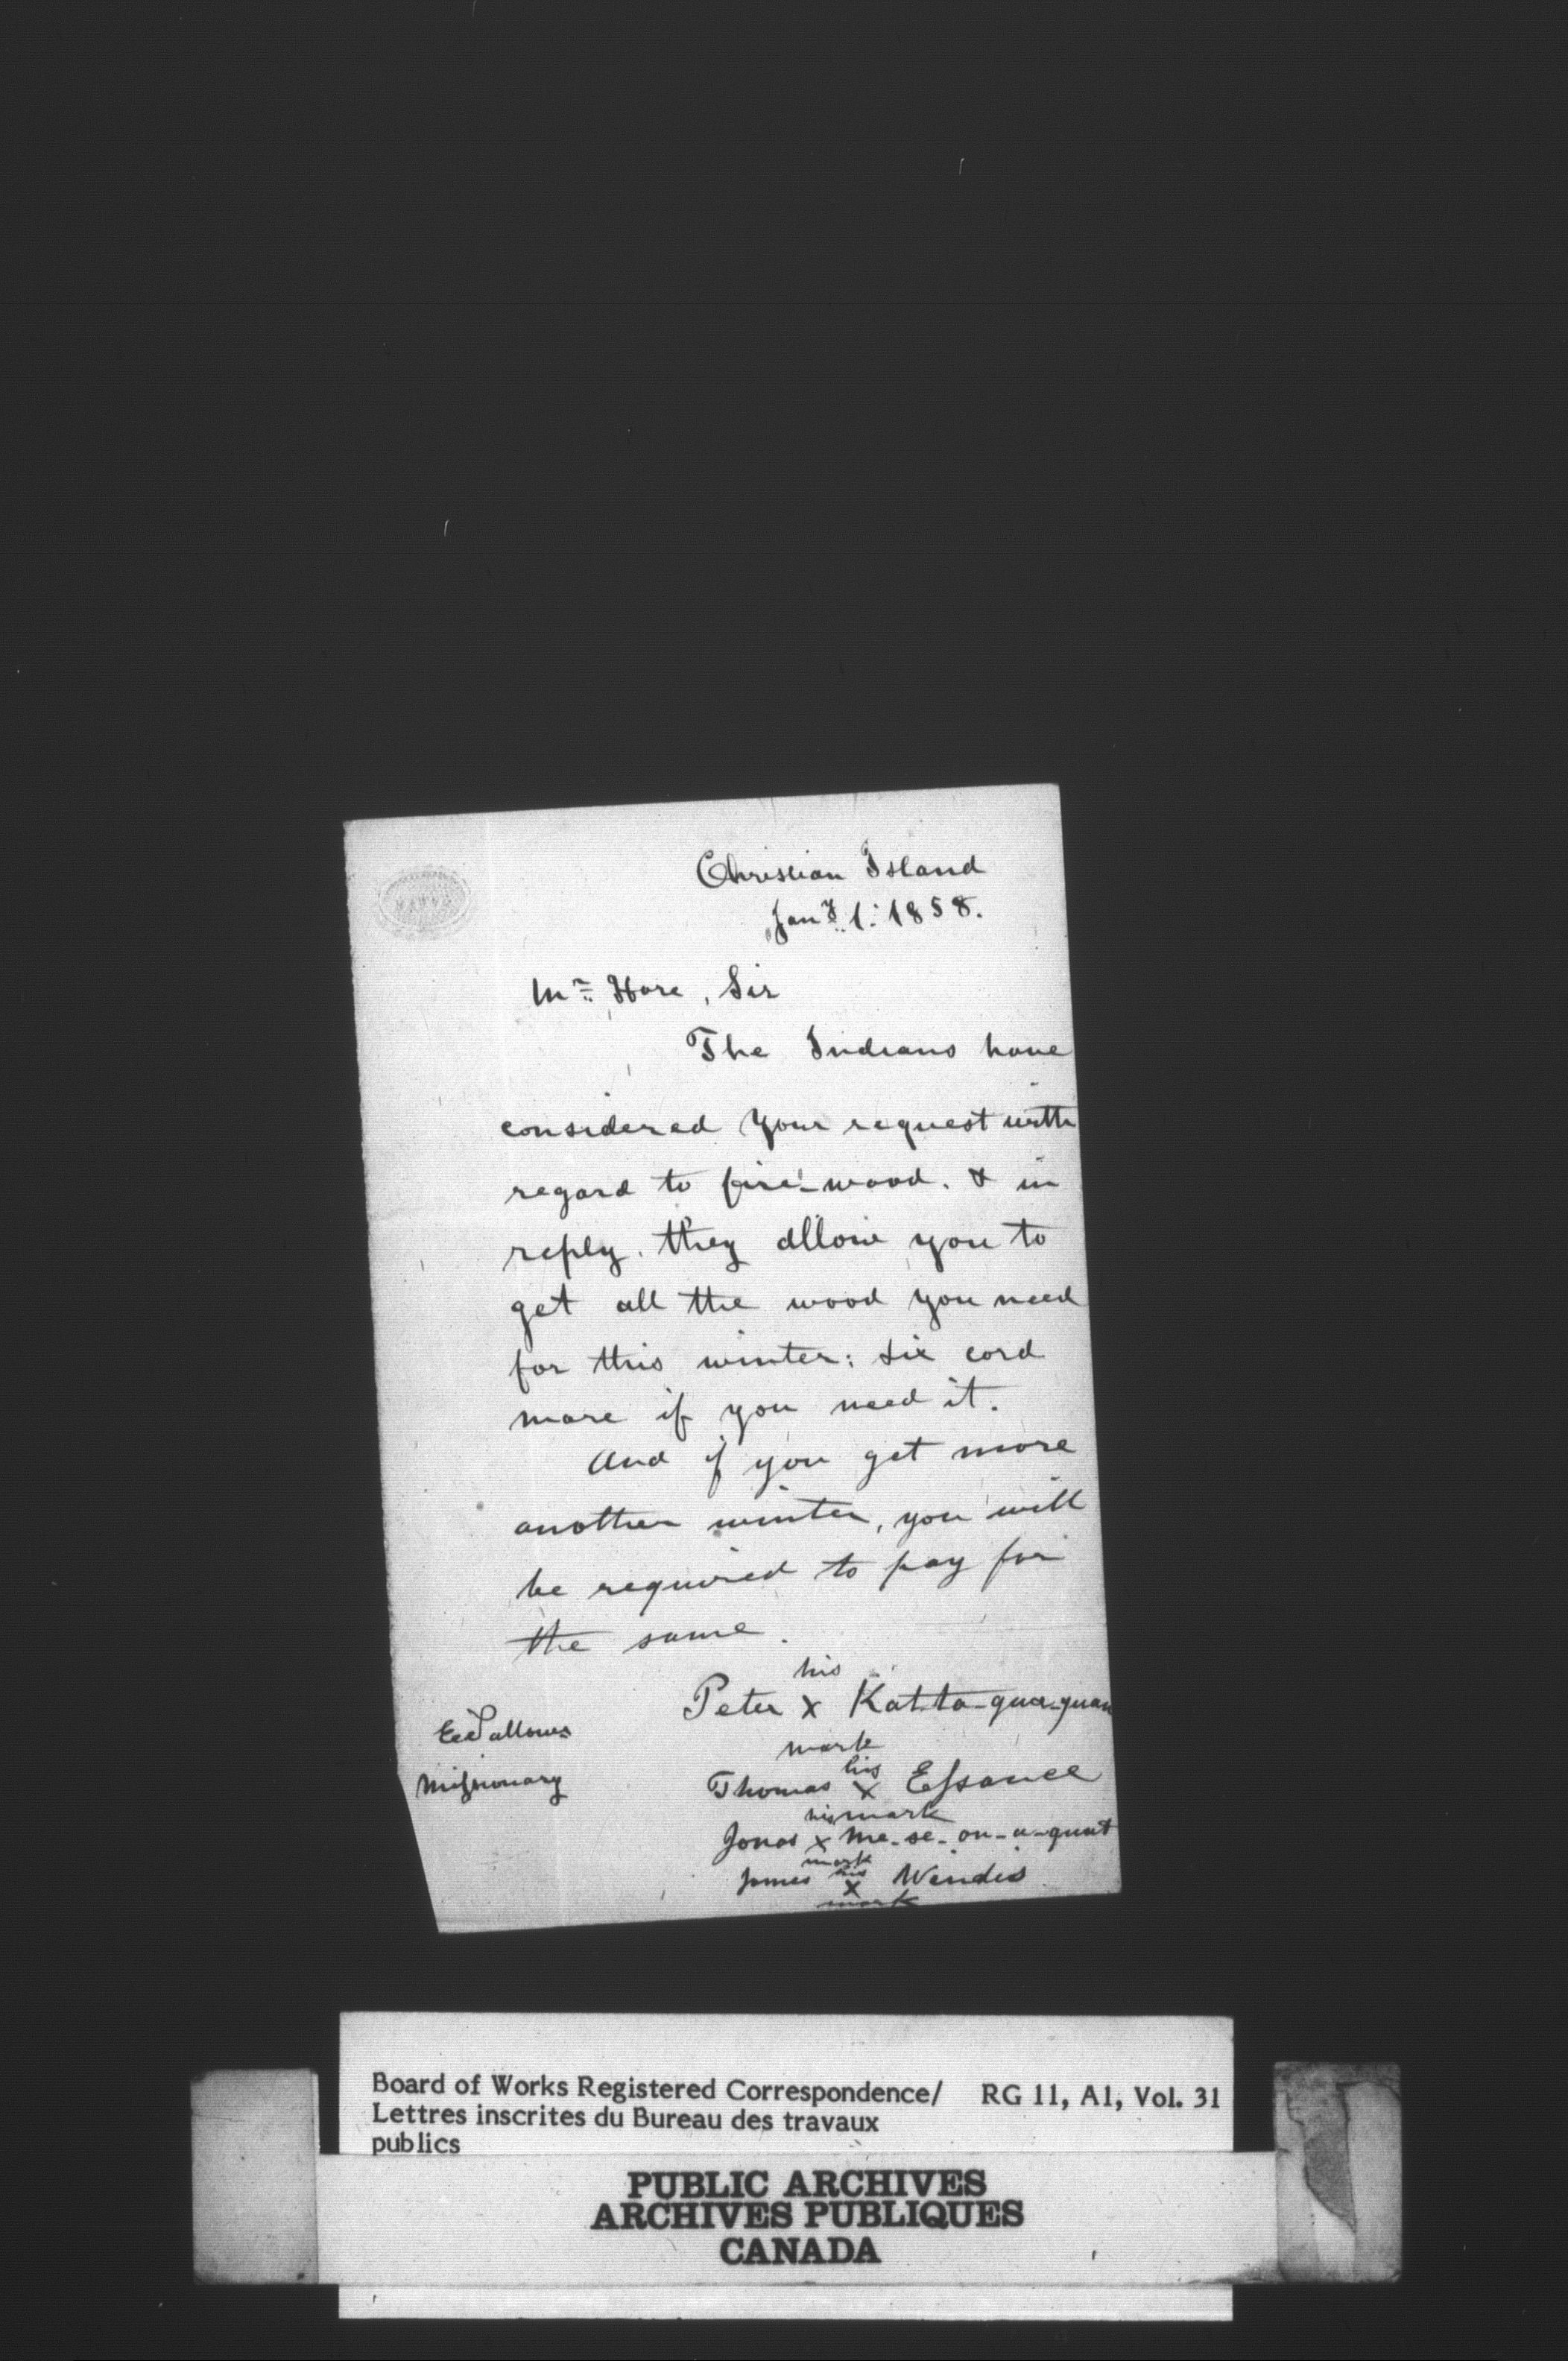 Christian Island
Jany. 1: 1858.
Mr. Hore, Sir
The Indians have
considered your request with
regard to fire-wood. & in
reply. they allow you to
get all the wood you need
for this winter: six cord
more if you need it.
And if you get more
another winter, you will
be required to pay for
the same.
his
Peter x Katta-qua-quan
mark
his
Thomas x Essance
mark
his
Jonas x Me-se-on-a-quat
mark
his
James x Windis
mark
Missionary
Board of Works Registered Correspondence/ RG 11, A1, Vol. 31
Lettres inscrites du Bureau des travaux
publics
PUBLIC ARCHIVES
ARCHIVES PUBLIQUES
CANADA